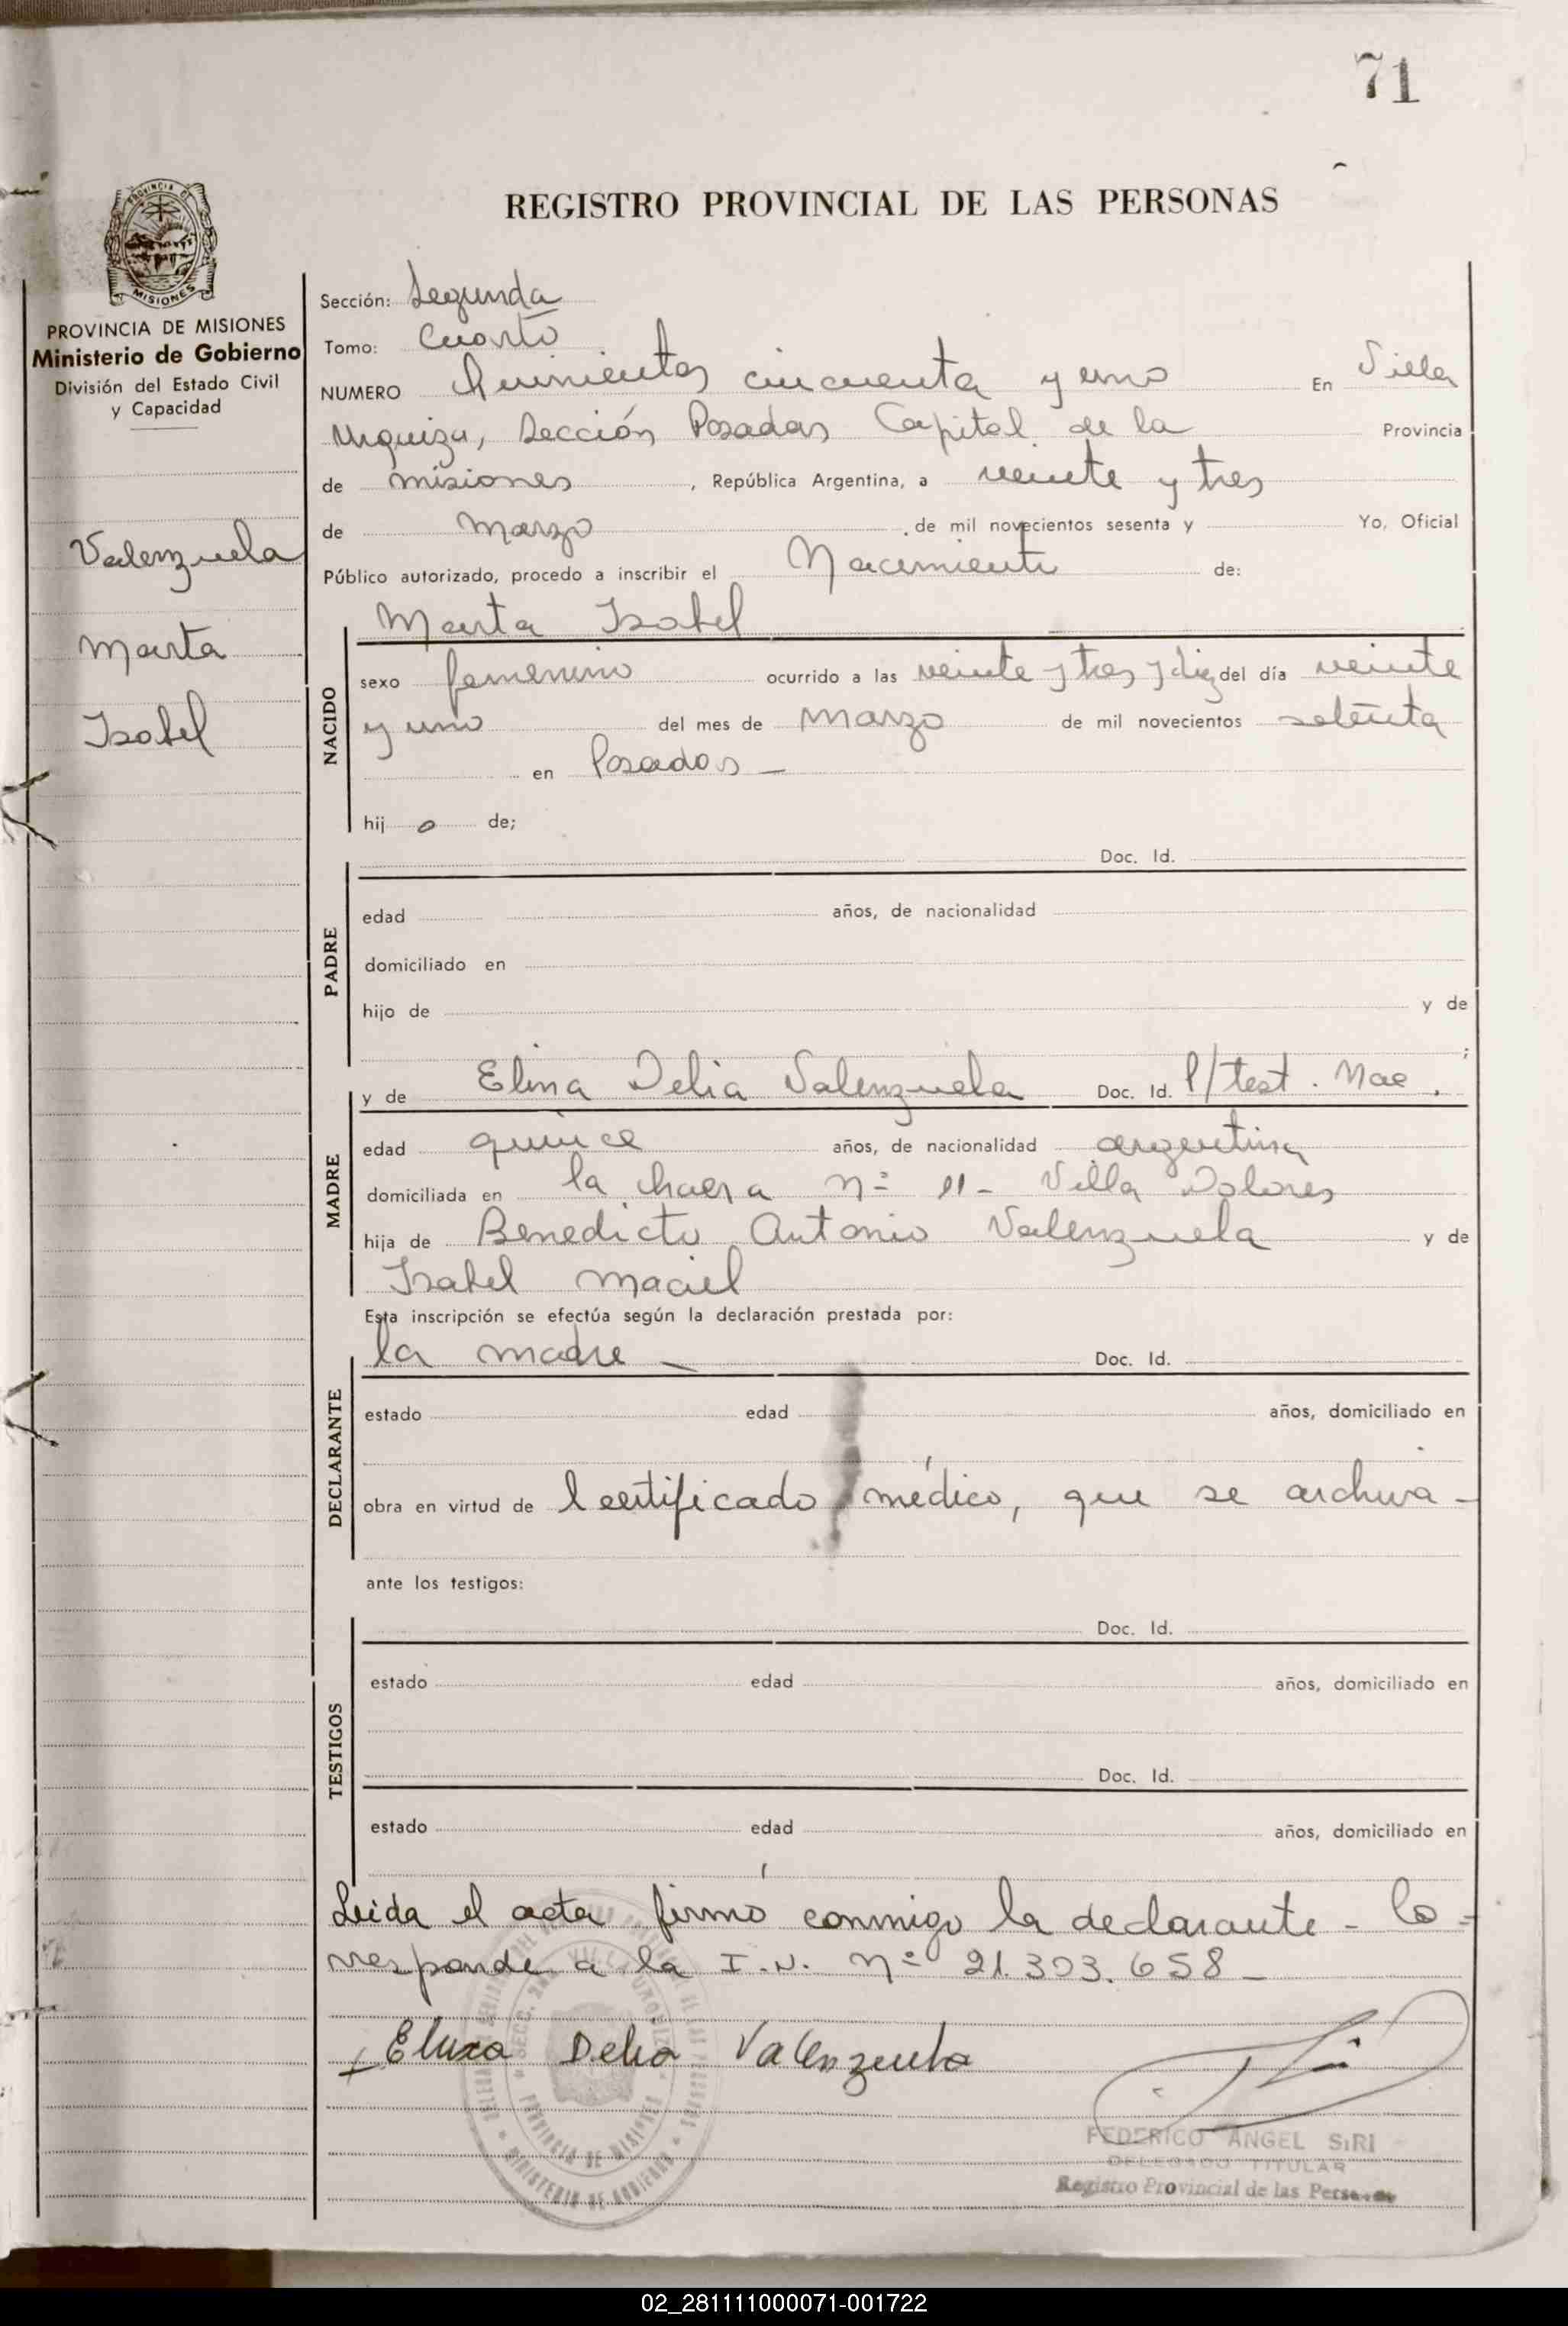 71
PROVINCIA DE MISIONES
REGISTRO PROVINCIAL DE LAS PERSONAS
PROVINCIA DE MISIONES
Ministerio de Gobierno
División del Estado Civil
y Capacidad
Valenzuela
Marta
Isabel
Sección: Segunda
Tomo: Cuarto
NUMERO Quinientos cincuenta y uno En Villa
Urquiza, Sección Posadas Capital de la Provincia
de misiones, República Argentina, a veinte y tres
de marzo de mil novecientos sesenta y Yo, Oficial
Público autorizado, procedo a inscribir el Nacimiento de:
Marta Isabel
NACIDO
sexo femenino ocurrido a las veinte y tres y diez del día veinte
y uno del mes de marzo de mil novecientos setenta
en Posadas -
hij a de;
PADRE
Doc. Id.
edad años, de nacionalidad
domiciliado en
hijo de y de
;
MADRE
y de Elina Delia Valenzuela Doc. Id. P/test. Nac.
edad quince años, de nacionalidad argentina
domiciliada en la chacra nº 11 - Villa Dolores
hija de Benedicto Antonio Valenzuela y de
Isabel Maciel
Esta inscripción se efectúa según la declaración prestada por:
DECLARANTE
la madre - Doc. Id.
estado edad años, domiciliado en
obra en virtud de certificado médico, que se archiva -
ante los testigos:
TESTIGOS
Doc. Id.
estado edad años, domiciliado en
Doc. Id.
estado edad años, domiciliado en
Leida el acta firmó conmigo la declarante - Co-
rresponde a la I.N. nº 21.303.658 -
Delia Valenzuela
FEDERICO ANGEL SIRI
DELEGADO TITULAR
Registro Provincial de las Personas
PROVINCIA DE MISIONES
MINISTERIO DE GOBIERNO
02_281111000071-001722